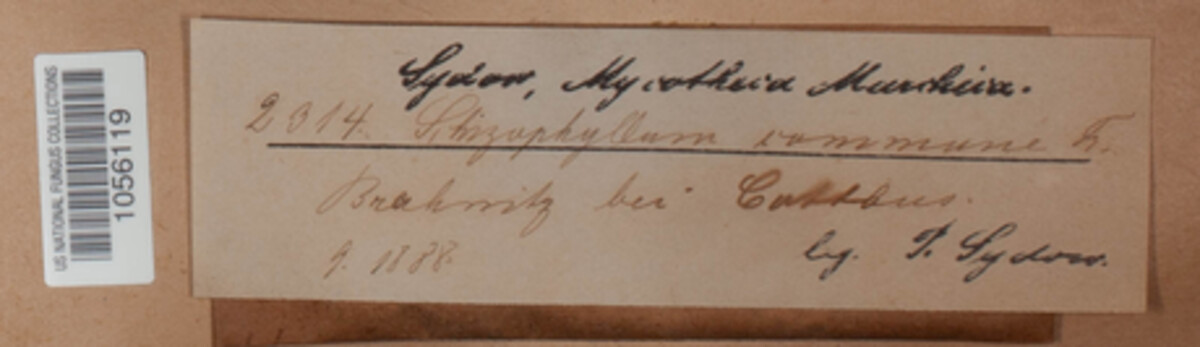 US NATIONAL FUNGUS COLLECTIONS
1056119
Sydow, Mycotheca Marchica.
2314. Schizophyllum commune Fr.
Brahnitz bei Cottbus.
9. 1888.
leg. P. Sydow.